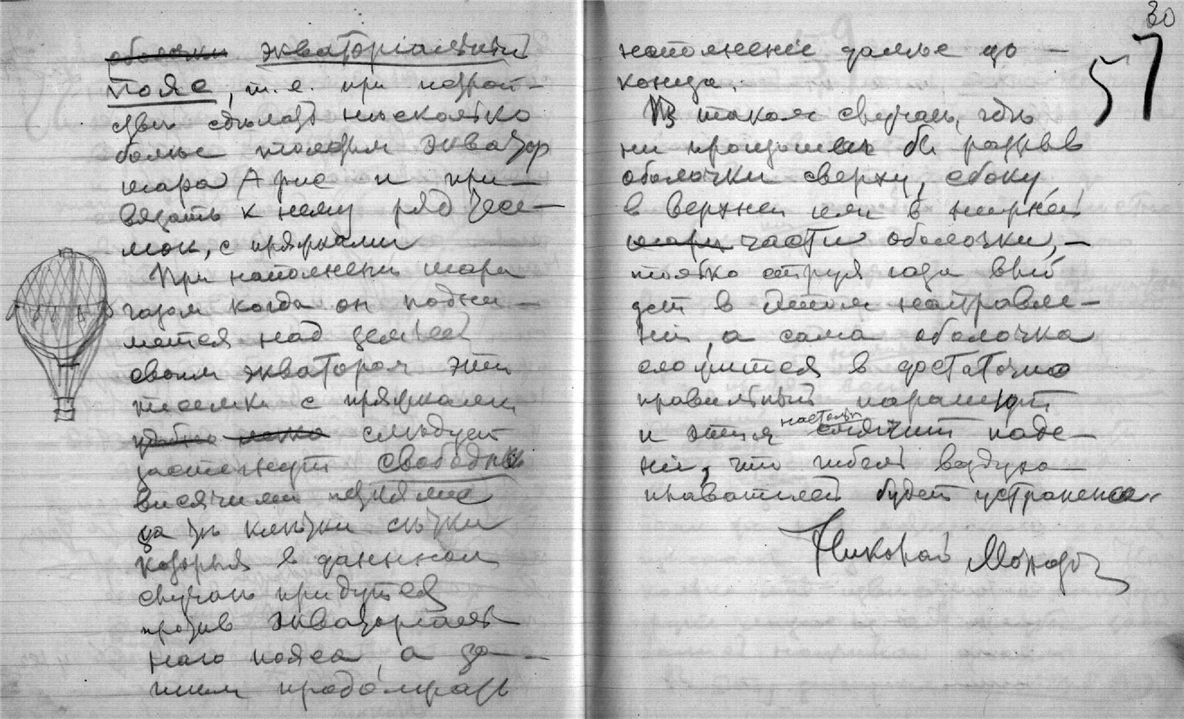 оболочки экваторіальный
поясъ, т. е. при построй-
сдѣлать нѣсколько
болѣе толстым экватор
шара А рис и при-
вязать к нему ряд тесе-
мок, с пряжками
При наполненіи шара
газом когда он подни-
мется над землей
своим экватором эти
тесемки с пряжками
слѣдует
застегнуть свободно
висячими
за тѣ клѣтки сѣтки
которыя в данном
случаѣ придутся
против экваторіаль
наго пояса, а за-
тѣм продолжать
30
57
наполненіе далѣе до
конца.
В таком случаѣ, гдѣ
ни произошел бы разрыв
оболочки сверху, сбоку
в верхней или в нижней
шара части оболочки,
только струя газа вый
дет в этом направле-
ніи, а сама оболочка
сложится в достаточно
правильный парашют
и этим настолько смягчит паде-
ніе, что гибель воздухо
плавателей будет устранена.
Николай Морозов